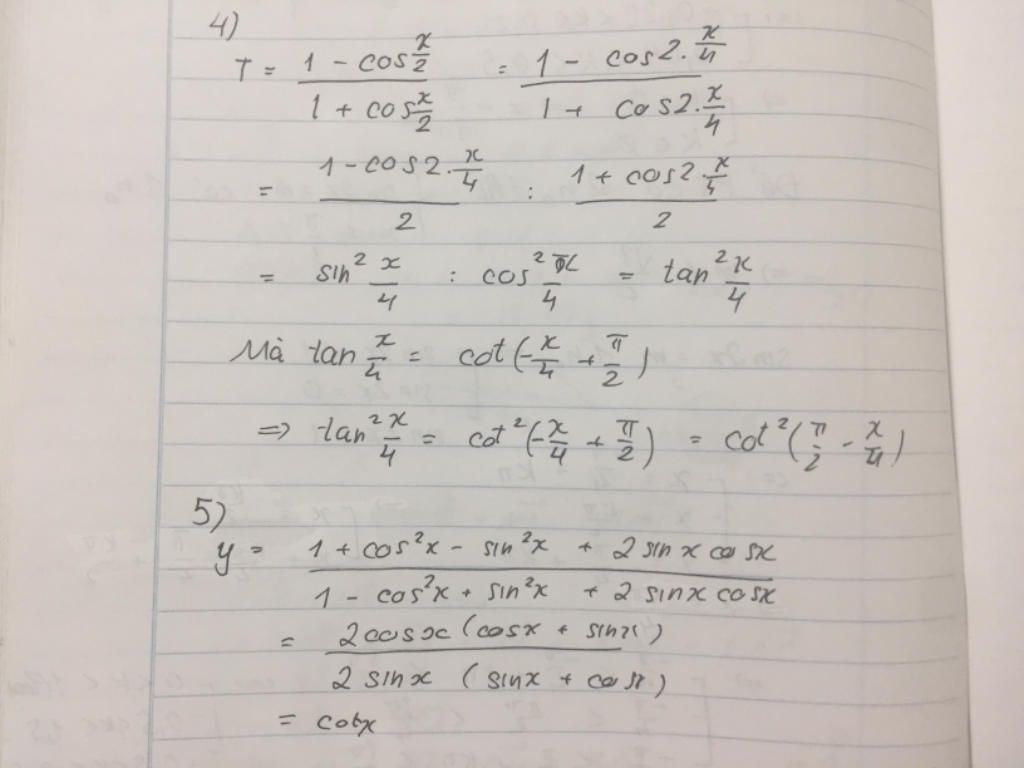 4)
T = (1 - cos x/2)/(1 + cos x/2) = (1 - cos2.x/4)/(1 + cos2.x/4)
= (1 - cos2.x/4)/2 : (1 + cos2.x/4)/2
= sin² x/4 : cos² x/4 = tan² x/4
Mà tan x/4 = cot(-x/4 + π/2)
=> tan² x/4 = cot²(-x/4 + π/2) = cot²(π/2 - x/4)
5)
y = (1 + cos²x - sin²x + 2 sinx cosx)/(1 - cos²x + sin²x + 2 sinx cosx)
= (2cosx (cosx + sinx))/(2 sinx (sinx + cosx))
= cotx